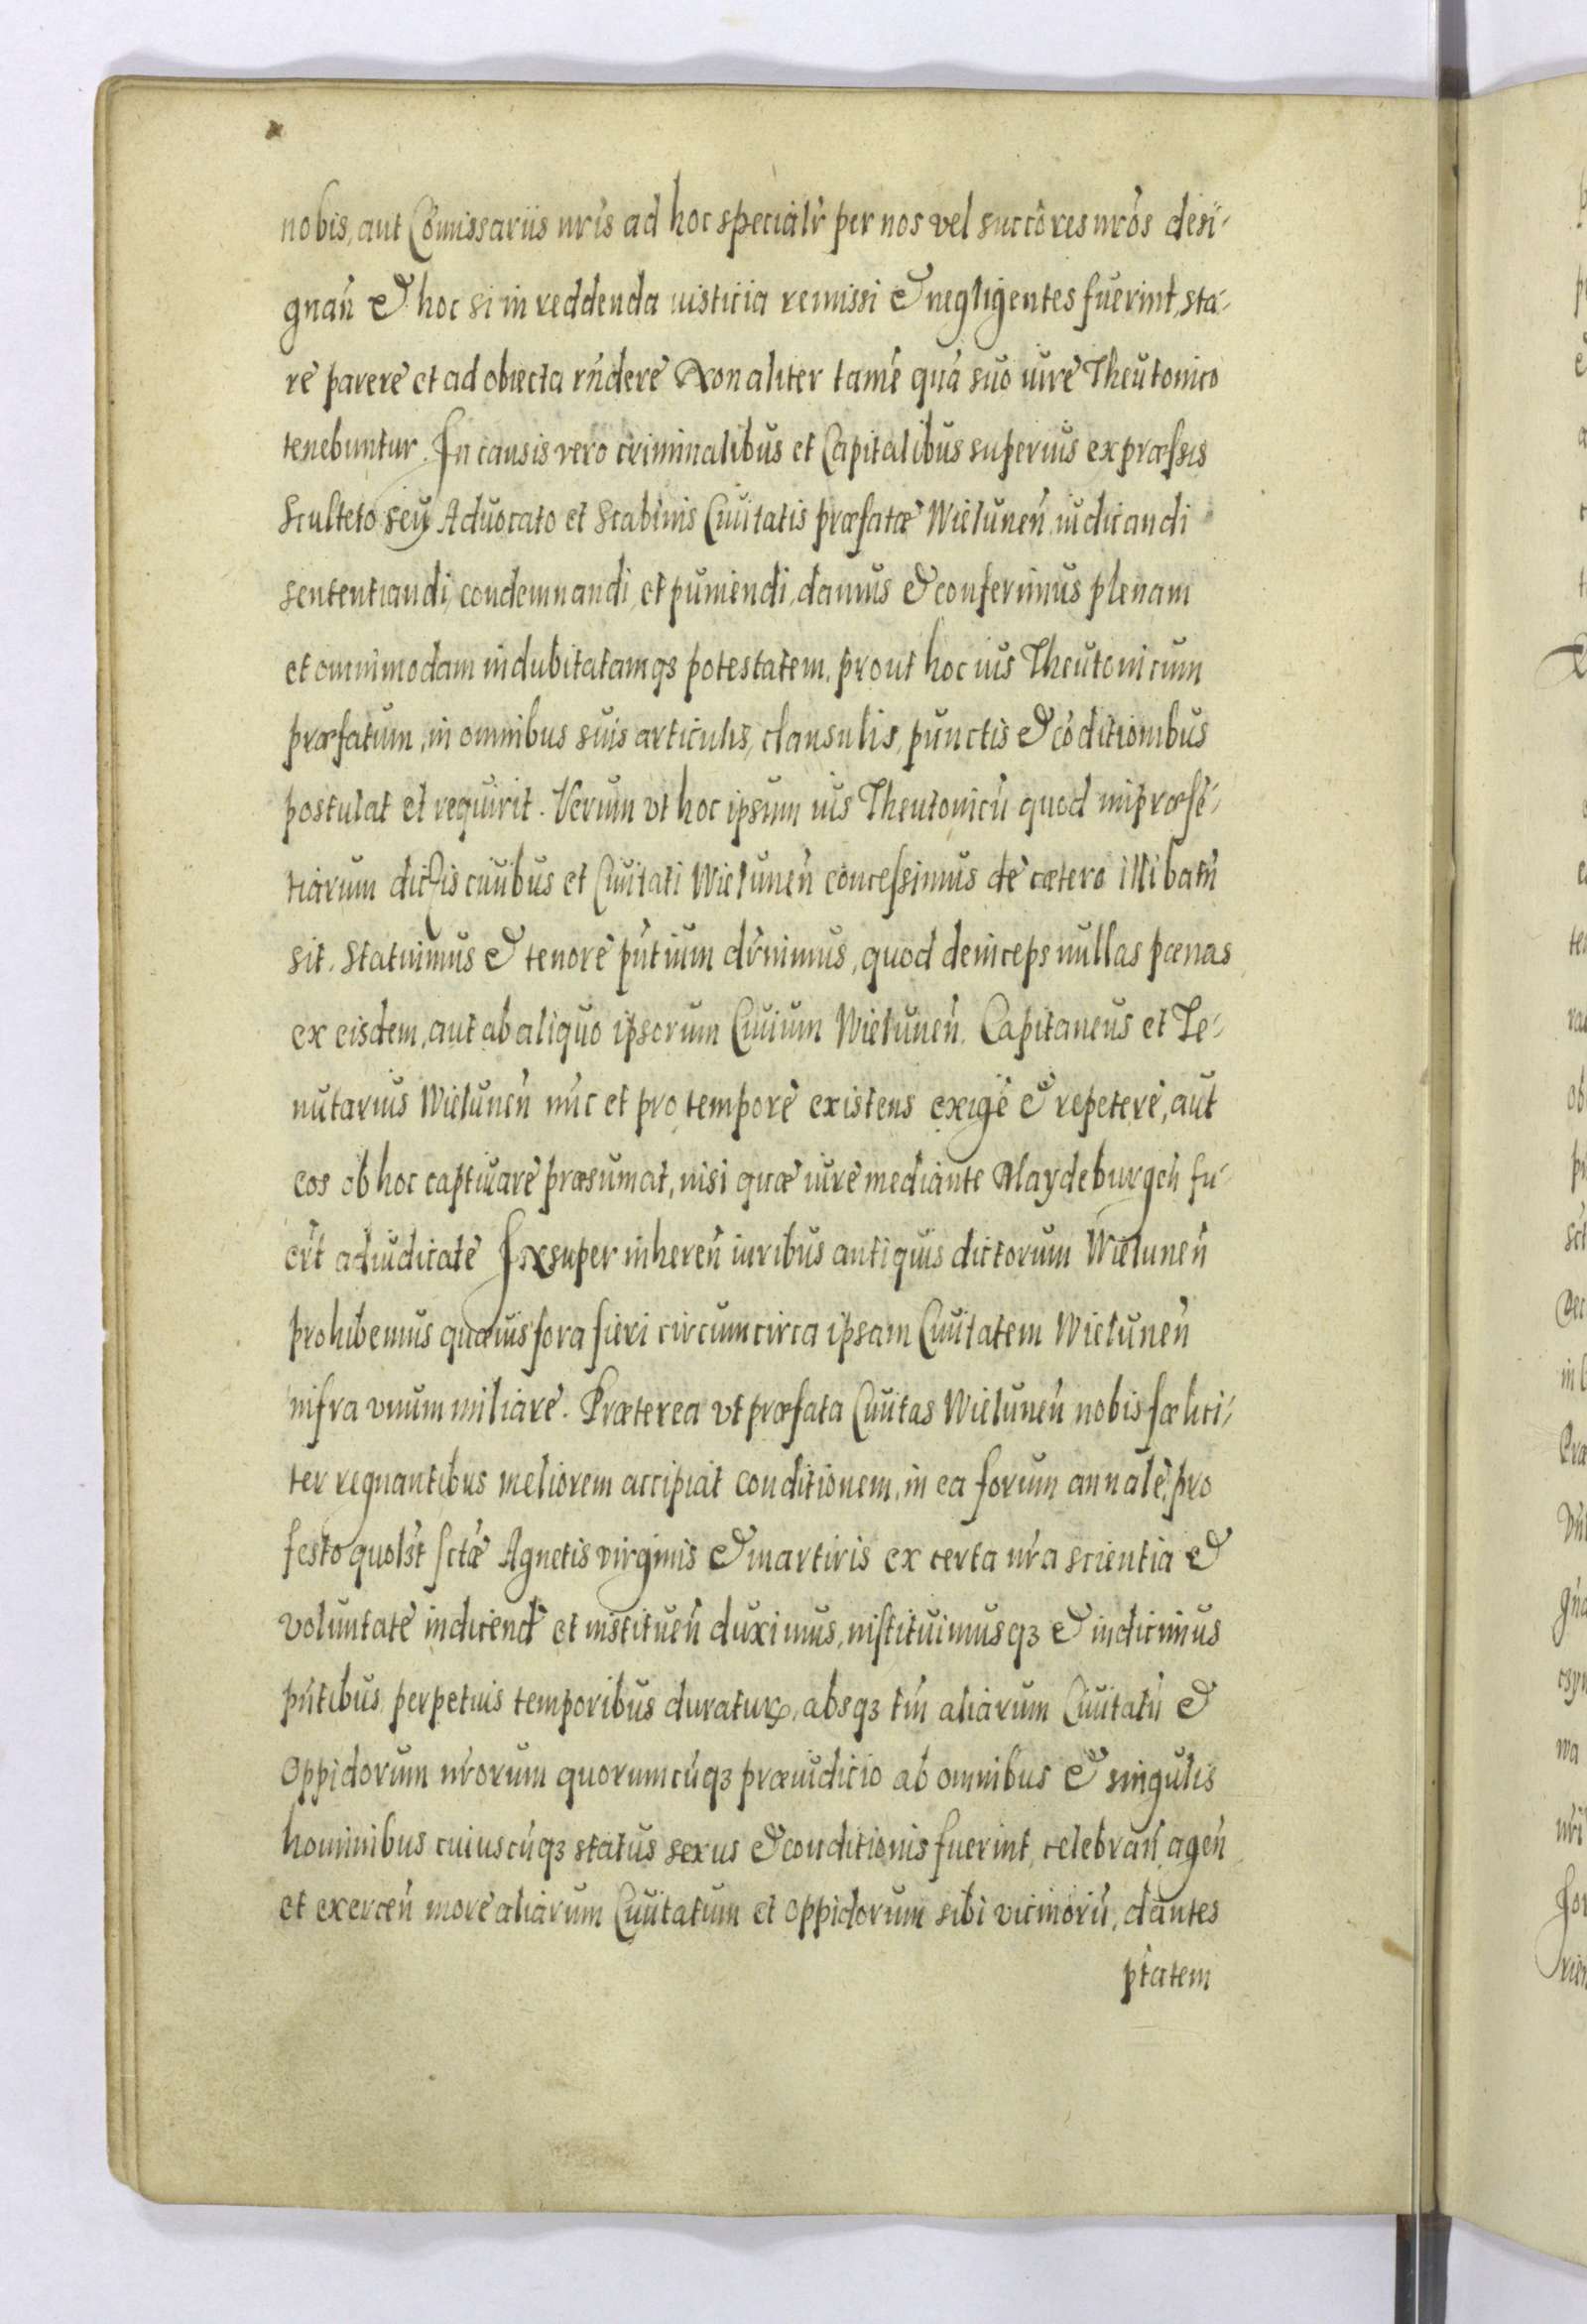 nobis, aut Cōmissariis nr̃is ad hoc specialr̃ per nos vel succōres nr̃os desi-
gnañ et hoc si in reddenda iusticia remissi et negligentes fuerint, sta-
re parere et ad obiecta rñdere Non aliter tamē quā suo iure Theutonico
tenebuntur. In causis vero criminalibus et Capitalibus superius expræssis
Sculteto seu Aduocato et Scabinis Ciuitatis præfatæ Wielunen̄ iudicandi
sententiandi, condemnandi, et puniendi, damus et conferimus plenam
et omnimodam indubitatamqs potestatem, prout hoc ius Theutonicum
præfatum, in omnibus suis articulis, clausulis, punctis et cōditionibus
postulat et requirit. Verum vt hoc ipsum ius Theutonicū quod in præsē-
tiarum dictis ciuibus et Ciuitati Wielunen̄ concessimus de cætero illibatū
sit. Statuimus et tenore pñtium dr̃nimus, quod deinceps nullas pœnas
ex eisdem, aut ab aliquo ipsorum Ciuium Wielunen̄. Capitaneus et Te-
nutarius Wielunen̄ nūc et pro tempore existens exigē et repetere, aut
eos ob hoc captiuare præsumat, nisi quæ iure mediante Maydeburgen̄ fu-
er̃t adiudicate Insuper inheren̄ iuribus antiquis dictorum Wielunen̄
prohibemus quæuis fora fieri circumcirca ipsam Ciuitatem Wielunen̄
infra vnum miliare. Præterea vt præfata Ciuitas Wielunen̄ nobis fœlici-
ter regnantibus meliorem accipiat conditionem, in ea forum annale, pro
festo quolʒt sctæ Agnetis virginis et martiris ex certa nr̃a scientia et
voluntate indicend̄ et instituen̄ duximus, instituimusqꝫ et indicimus
pñtibus, perpetuis temporibus duraturꝝ, absqꝫ tm̄ aliarum Ciuitatū et
Oppidorum nr̃orum quorumcūqꝫ præiudicio ab omnibus et singulis
hominibus cuiuscūqꝫ status sexus et conditionis fuerint, celebrañ, agen̄
et exercen̄ more aliarum Ciuitatum et Oppidorum sibi vicinorū, dantes
ptatem